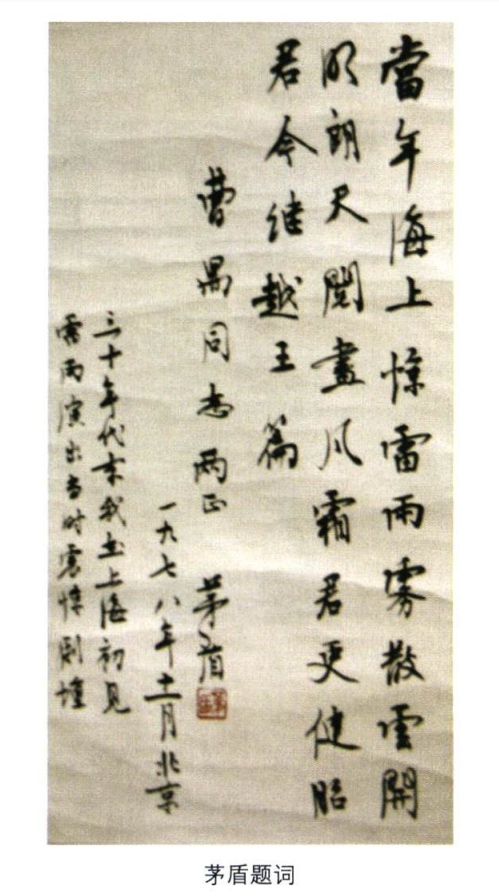 當年海上惊雷雨雾散雲開
明朗天閱盡风霜君更健昭
君今继越王篇
曹禺同志两正 茅盾
一九七八年十一月北京
三十年代末我在上海初见
雷雨演出当时震惊剧坛
茅盾题词